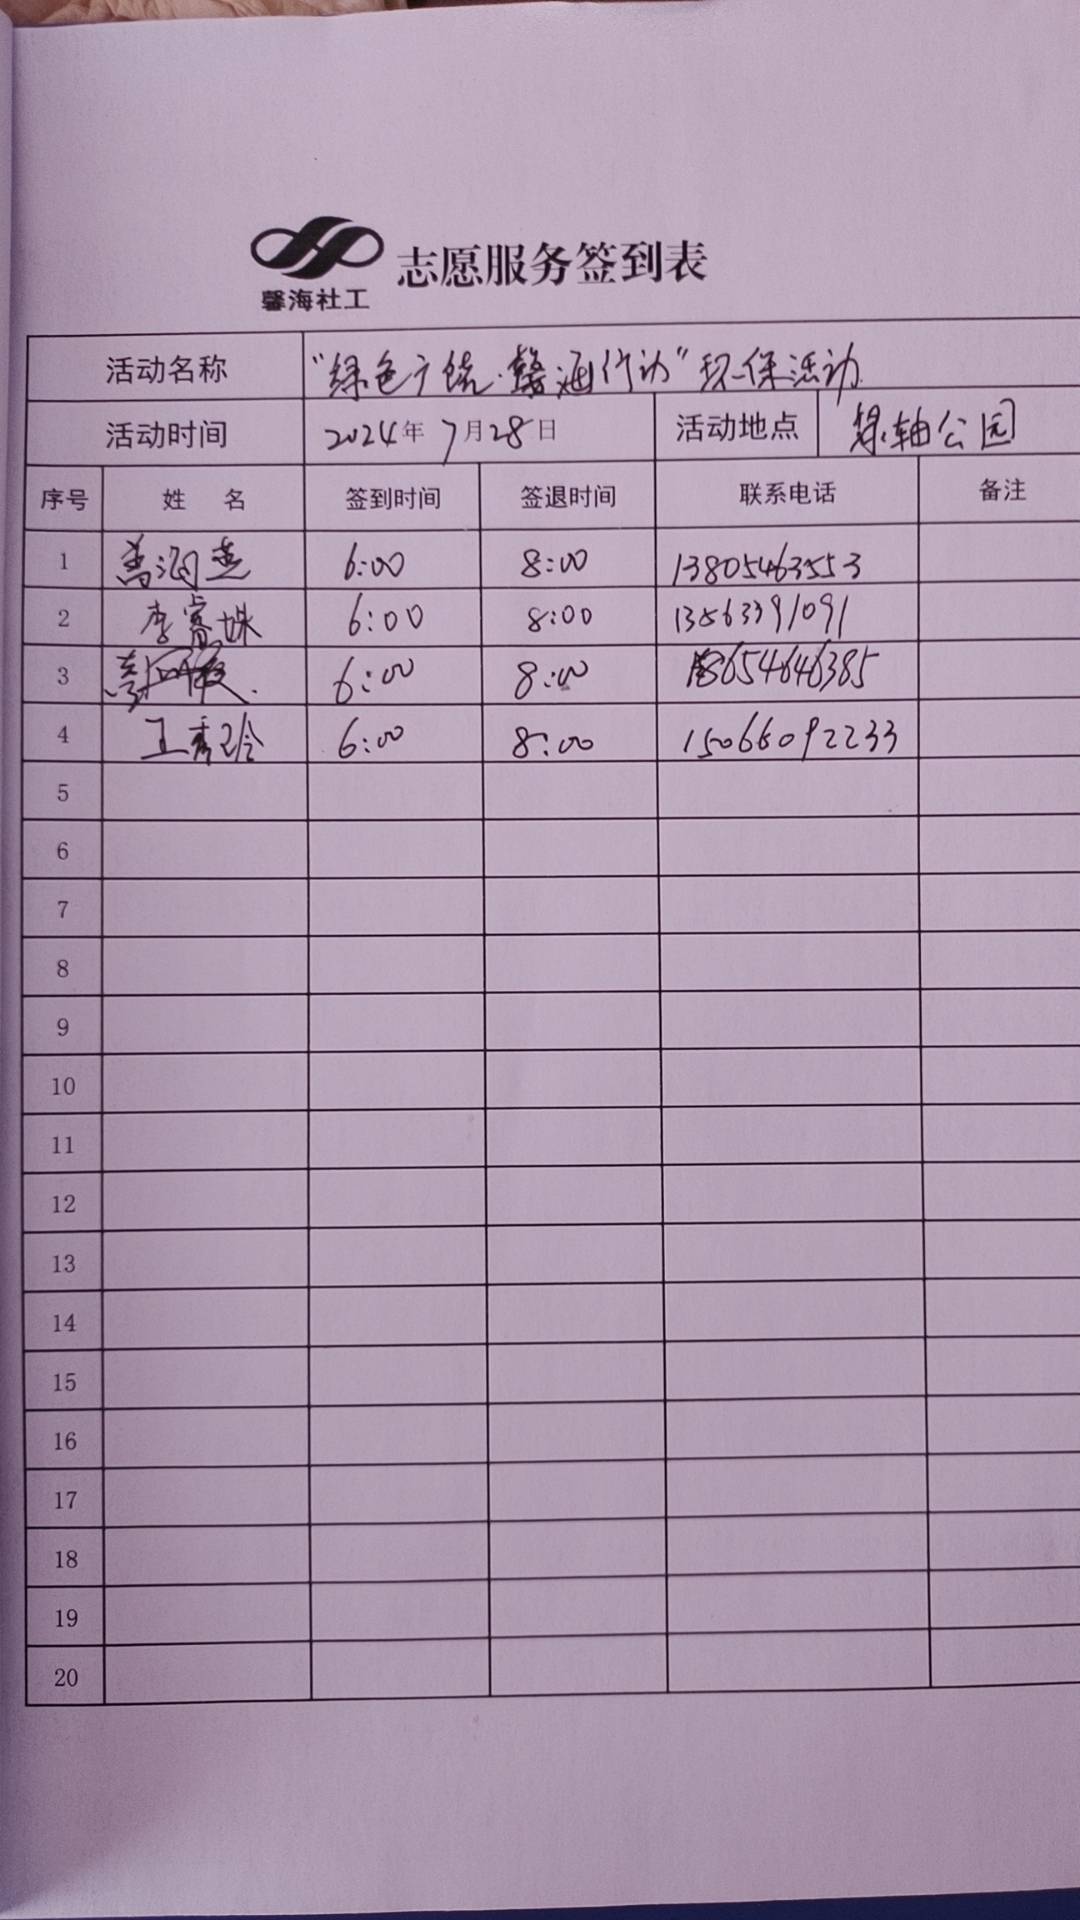 馨海社工
志愿服务签到表
活动名称 "绿色广饶·馨海行动"环保活动
活动时间 2024年7月28日 活动地点 绿轴公园
序号 姓 名 签到时间 签退时间 联系电话 备注
1 6:00 8:00 13805463553
2 李 6:00 8:00 13563391091
3 6:00 8:00 18654646385
4 王秀玲 6:00 8:00 15066092233
5
6
7
8
9
10
11
12
13
14
15
16
17
18
19
20